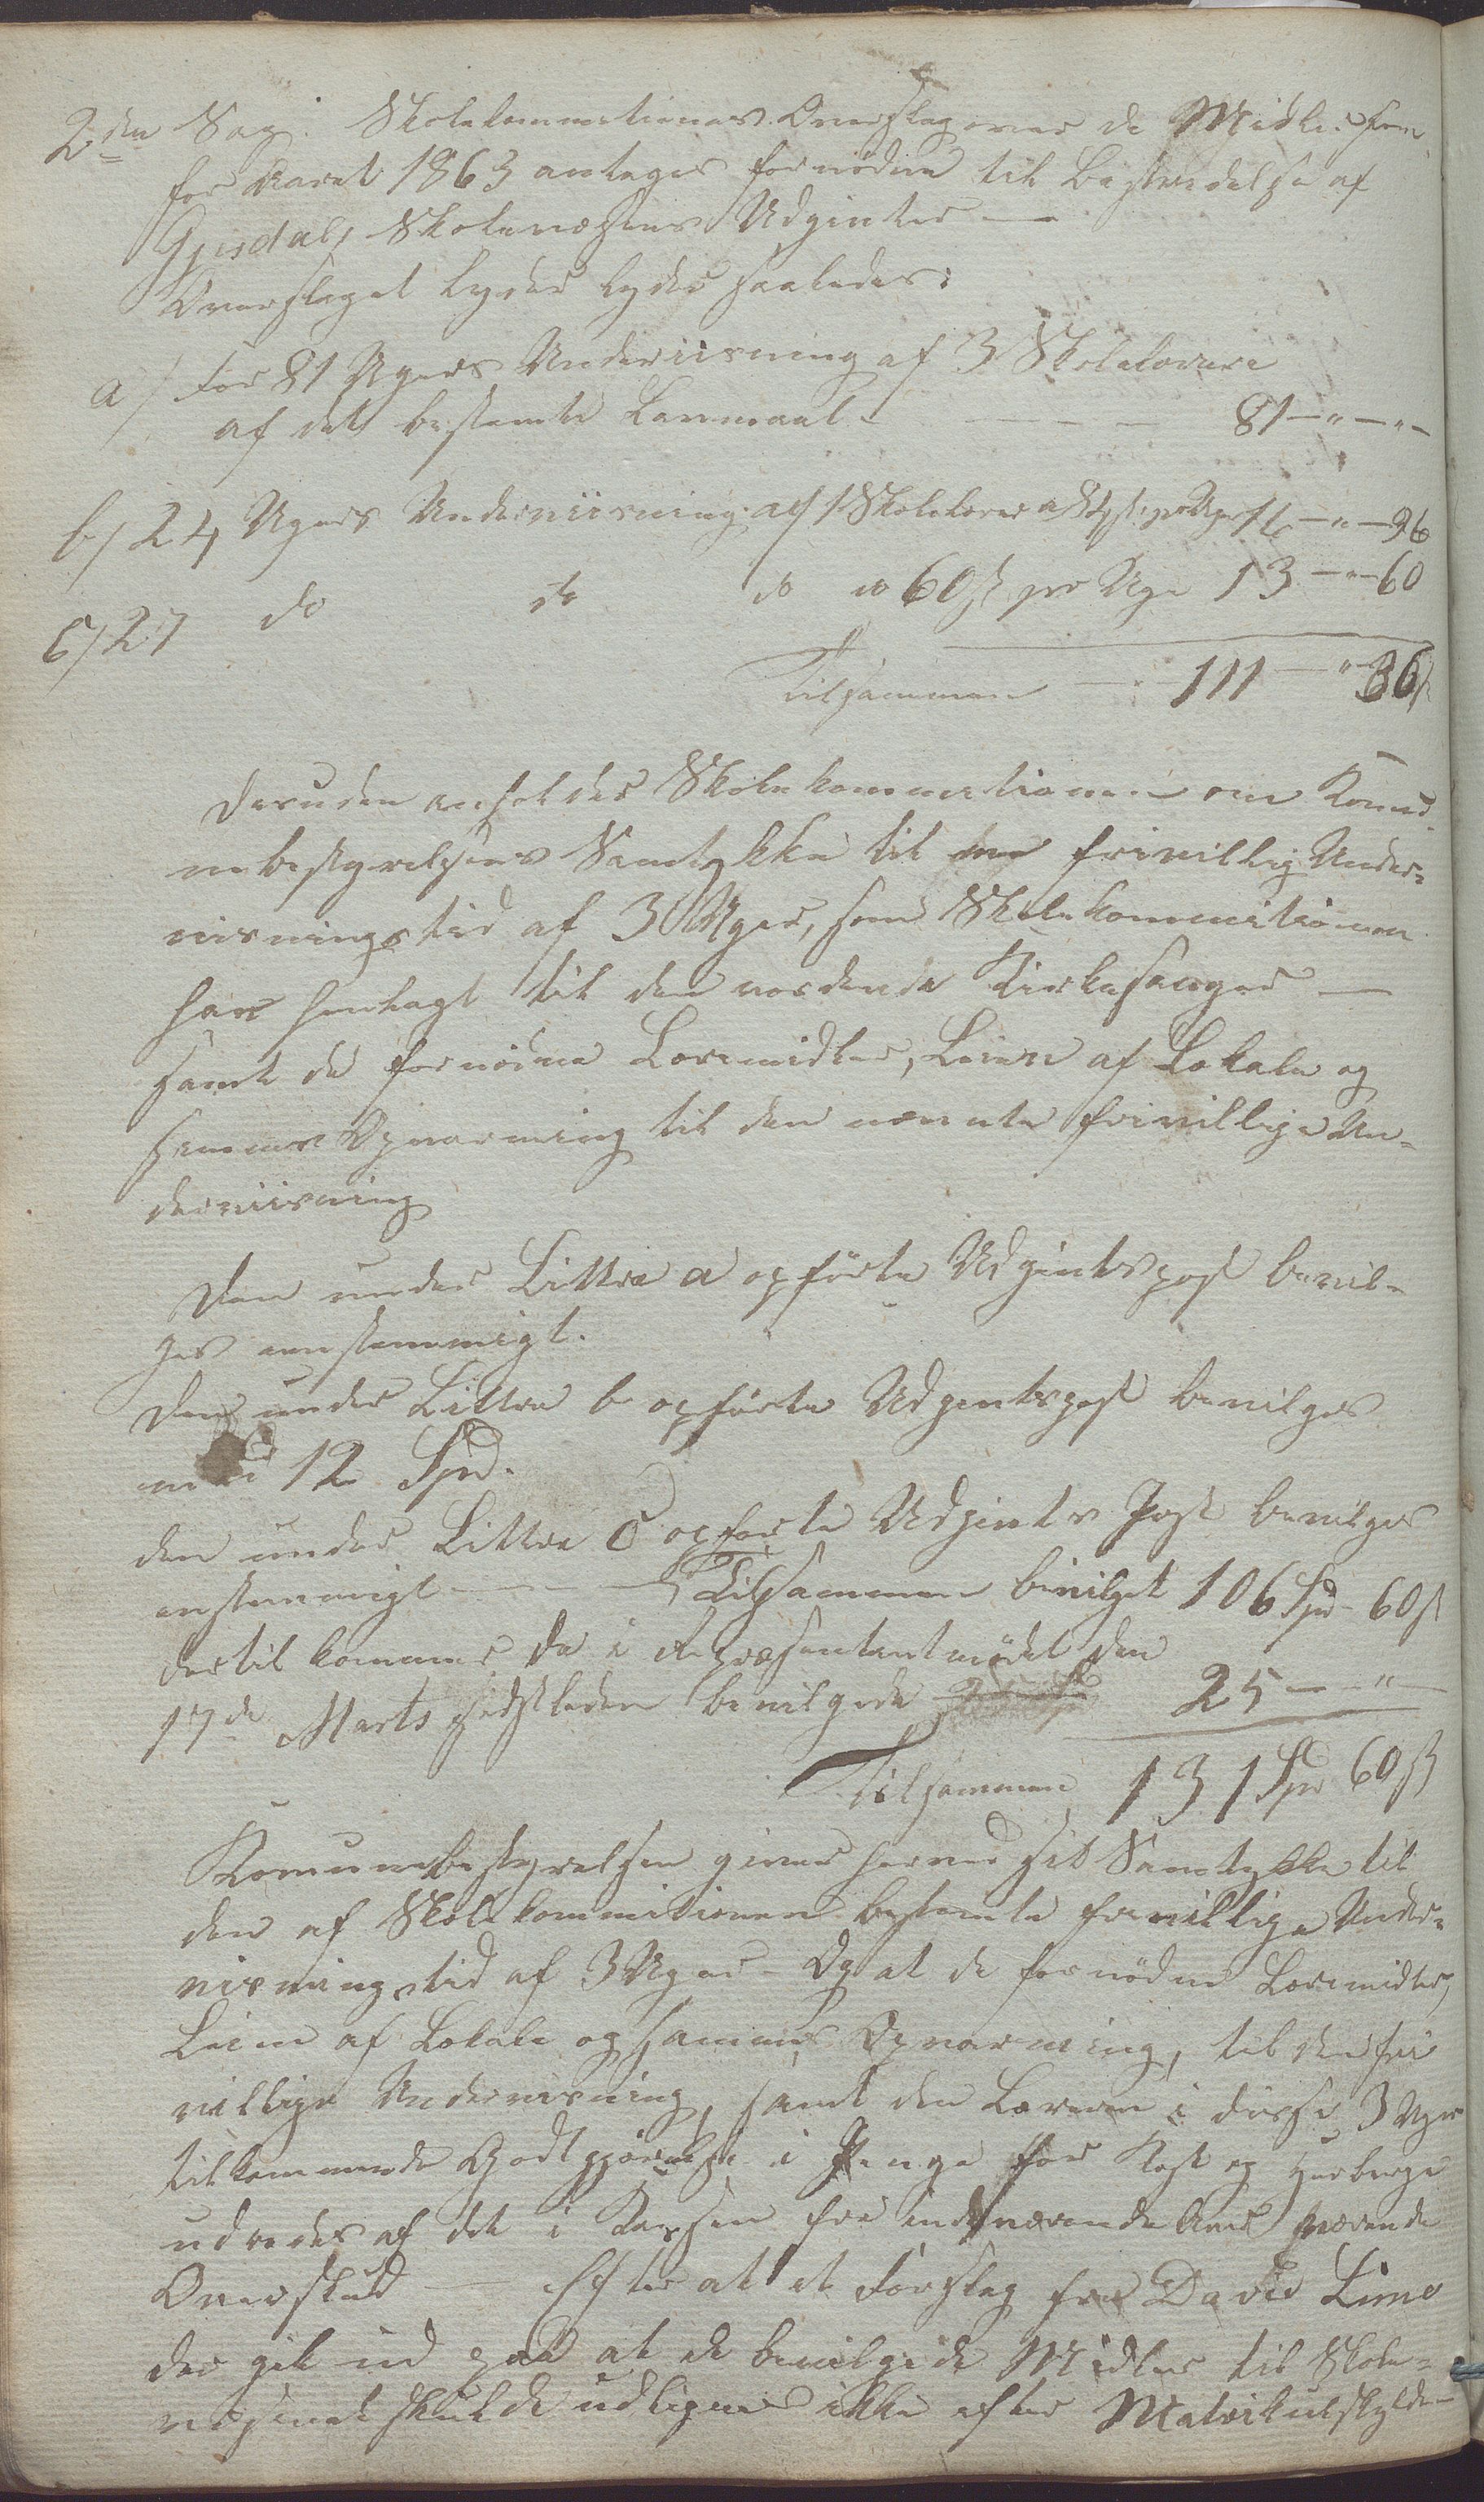 2den Sag. Skolekommitionens Overslag over de Midler som
for Aaret 1863 antages fornödne til Bestridelse af
Gjesdals Skolevæsens Udgivter —
Overslaget lyder lyder saaledes:
a/ For 81 Ugers Underviisning af 3 Skolelærere
af det bestemte Lønmaal - — — — 81 — " — "
b/ 24 Ugers Underviisning af 1 Skolelærer a 84 s pr Uge 16 — " — 96
C/ 27 do do do a 60 s pr Uge 13 — " — 60
Tilsammen — . — 111 — " 36 s
Desuden anholder Skolekommitionen om Komu-
nebestyrelsens Samtykke til frivillig Under-
viisningstid af 3 Uger, som Skolekommitionen
har henlagt til den vordende Kirkesanger —
samt de fornödne Læremidler, Leien af Lokale og
sammes Opvarming til den nævnte frivillige Un-
derviisning
Den under Littra a opförte Udgivtspost bevil-
ges eenstemmigt.
Den under Littra b opförte Udgivtspost bevilges
med 12 Spd.
den under Littra C opförte Udgivts Post bevilges
enstemmigt — — — Tilsammen bevilget 106 Spd - 60 s
dertil kommer de i Repræsentantmödet den
17de Marts sidstleden bevilgede 25 — " —
Tilsammen 131 Spd 60 s
Komunebestyrelsen giver herved sit Samtykke til
den af Skolekommitionen bestemte frivillige Under-
visningstid af 3 Uger - Og at de fornödne Læremidler,
Leien af Lokale og sammes Opvarming, til den fri
villige Undervisning, samt den Læreren i disse 3 Uger
tilkommende Godtgjörelse i Penge for Kost og Herberge
udredes af det i Kassen fra indeværende Aar værende
Overskud — Efter at et Forslag fra David Lima
der gik ud paa at de bevilgede Midler til Skole-
væsenet skulde udlignes ikke efter Matrikulskylden